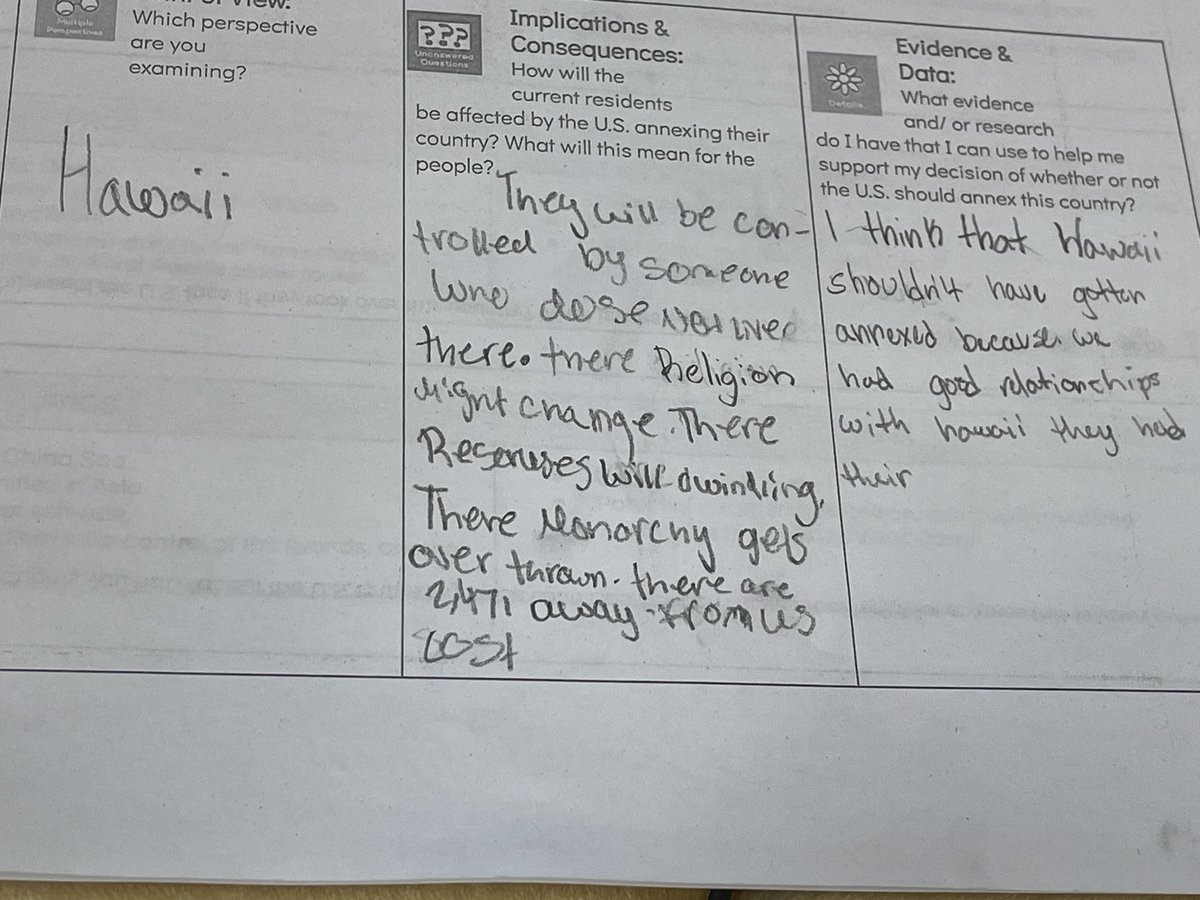 View:
Multiple
Perspectives
Which perspective
are you
examining?
Hawaii
???
Unanswered
Questions
Implications &
Consequences:
How will the
current residents
be affected by the U.S. annexing their
country? What will this mean for the
people?
They will be con-
trolled by someone
who dose not lived
there. there Religion
Might change. There
will dwindling.
There Monarchy gets
over thrown. there are
2,471 away from us
cost
Details
Evidence &
Data:
What evidence
and/ or research
do I have that I can use to help me
support my decision of whether or not
the U.S. should annex this country?
I think that Hawaii
shouldn't have gotten
annexed because we
had good relationships
with hawaii they had
their